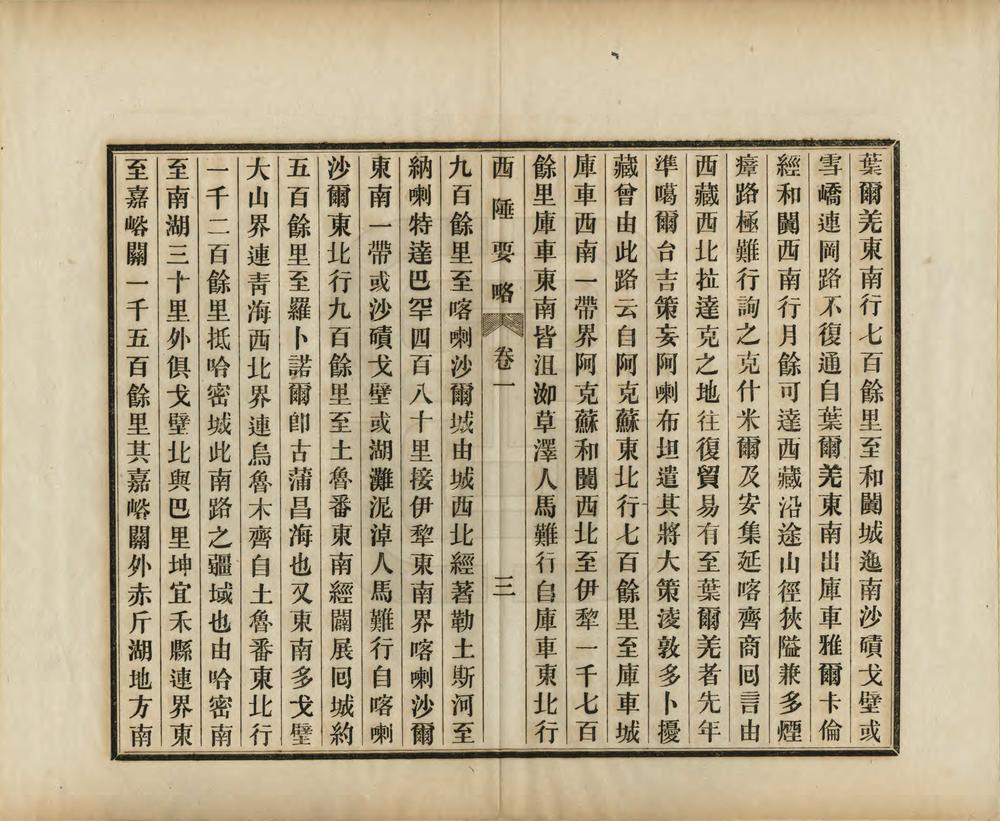 葉爾羌東南行七百餘里至和闐城迤南沙磧戈壁或
雪嶠連岡路不復通自葉爾羌東南出庫車雅爾卡倫
經和闐西南行月餘可達西藏沿途山徑狹隘兼多煙
瘴路極難行詢之克什米爾及安集延喀齊商回言由
西藏西北拉達克之地往復貿易有至葉爾羌者先年
準噶爾台吉策妄阿喇布坦遣其將大策淩敦多卜擾
藏曾由此路云自阿克蘇東北行七百餘里至庫車城
庫車西南一帶界阿克蘇和闐西北至伊犂一千七百
餘里庫車東南皆沮洳草澤人馬難行自庫車東北行
西陲要略 卷一 三
九百餘里至喀喇沙爾城由城西北經著勒土斯河至
納喇特達巴罕四百八十里接伊犂東南界喀喇沙爾
東南一帶或沙磧戈壁或湖灘泥淖人馬難行自喀喇
沙爾東北行九百餘里至土魯番東南經闢展回城約
五百餘里至羅卜諾爾卽古蒲昌海也又東南多戈壁
大山界連青海西北界連烏魯木齊自土魯番東北行
一千二百餘里抵哈密城此南路之疆域也由哈密南
至南湖三十里外俱戈壁北與巴里坤宜禾縣連界東
至嘉峪關一千五百餘里其嘉峪關外赤斤湖地方南